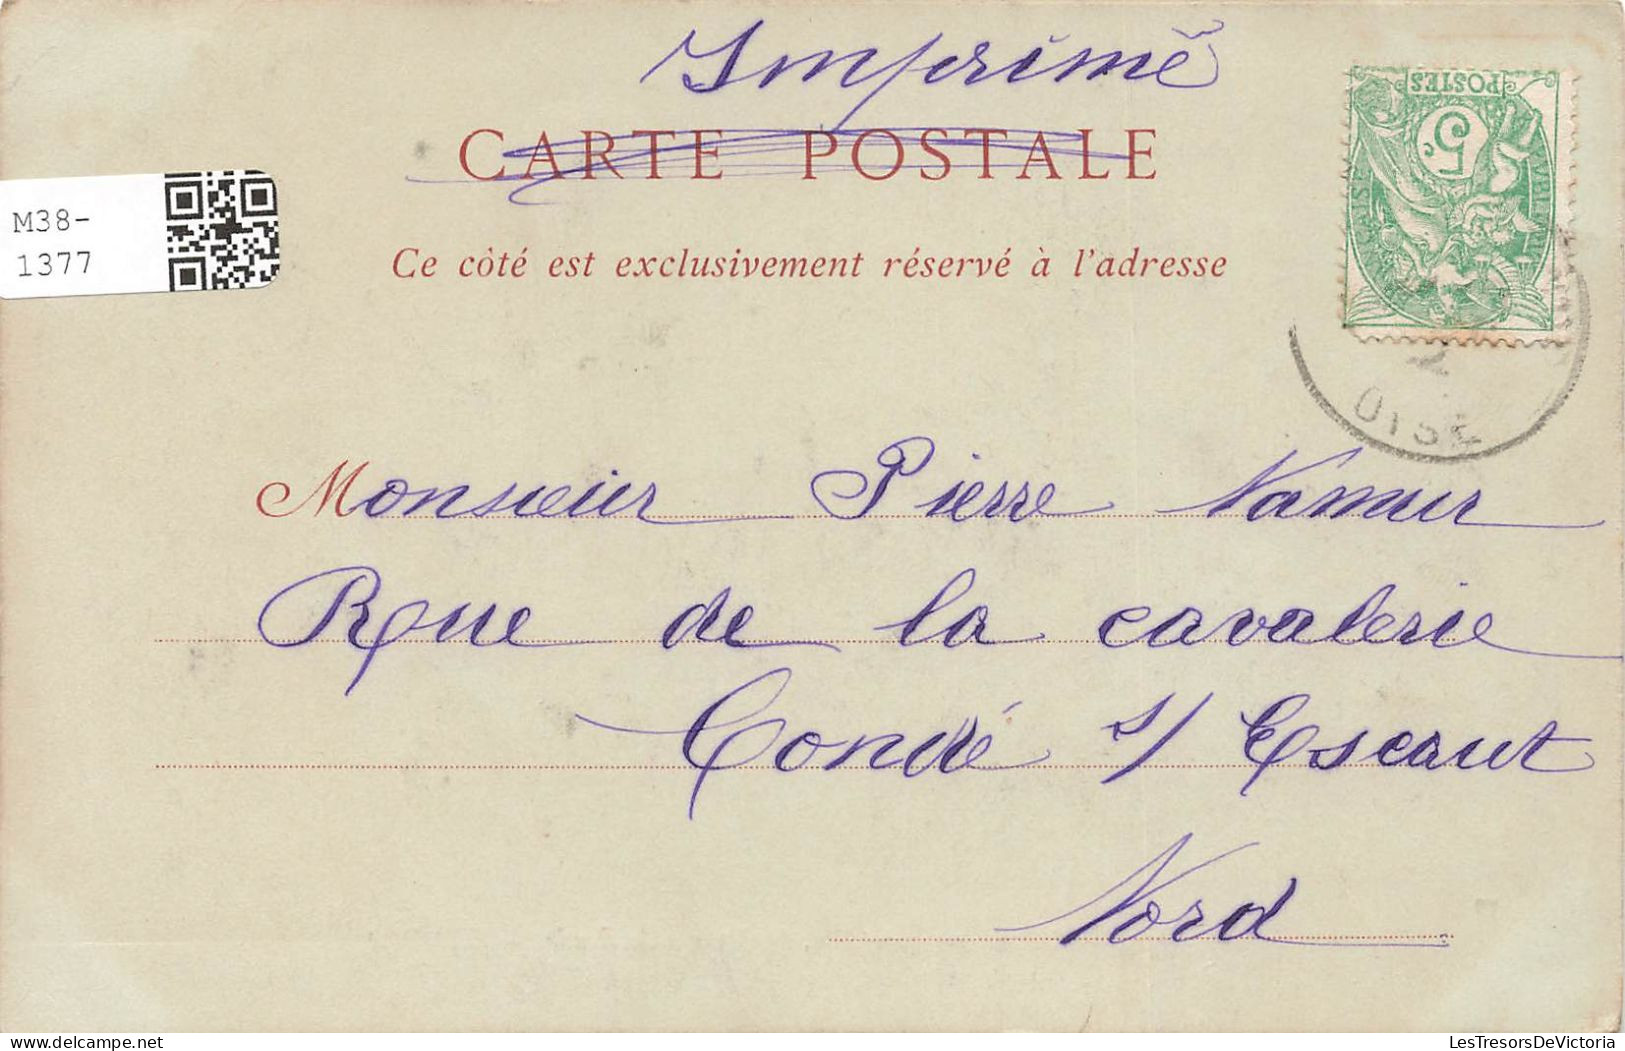 Imprimé
CARTE POSTALE
POSTES
5
M38-
1377
Ce côté est exclusivement réservé à l'adresse
OISE
Monsieur Pierre Namur
Rue de la cavalerie
Condé s/ Escaut
Nord
LesTresorsDeVictoria
www.delcampe.net